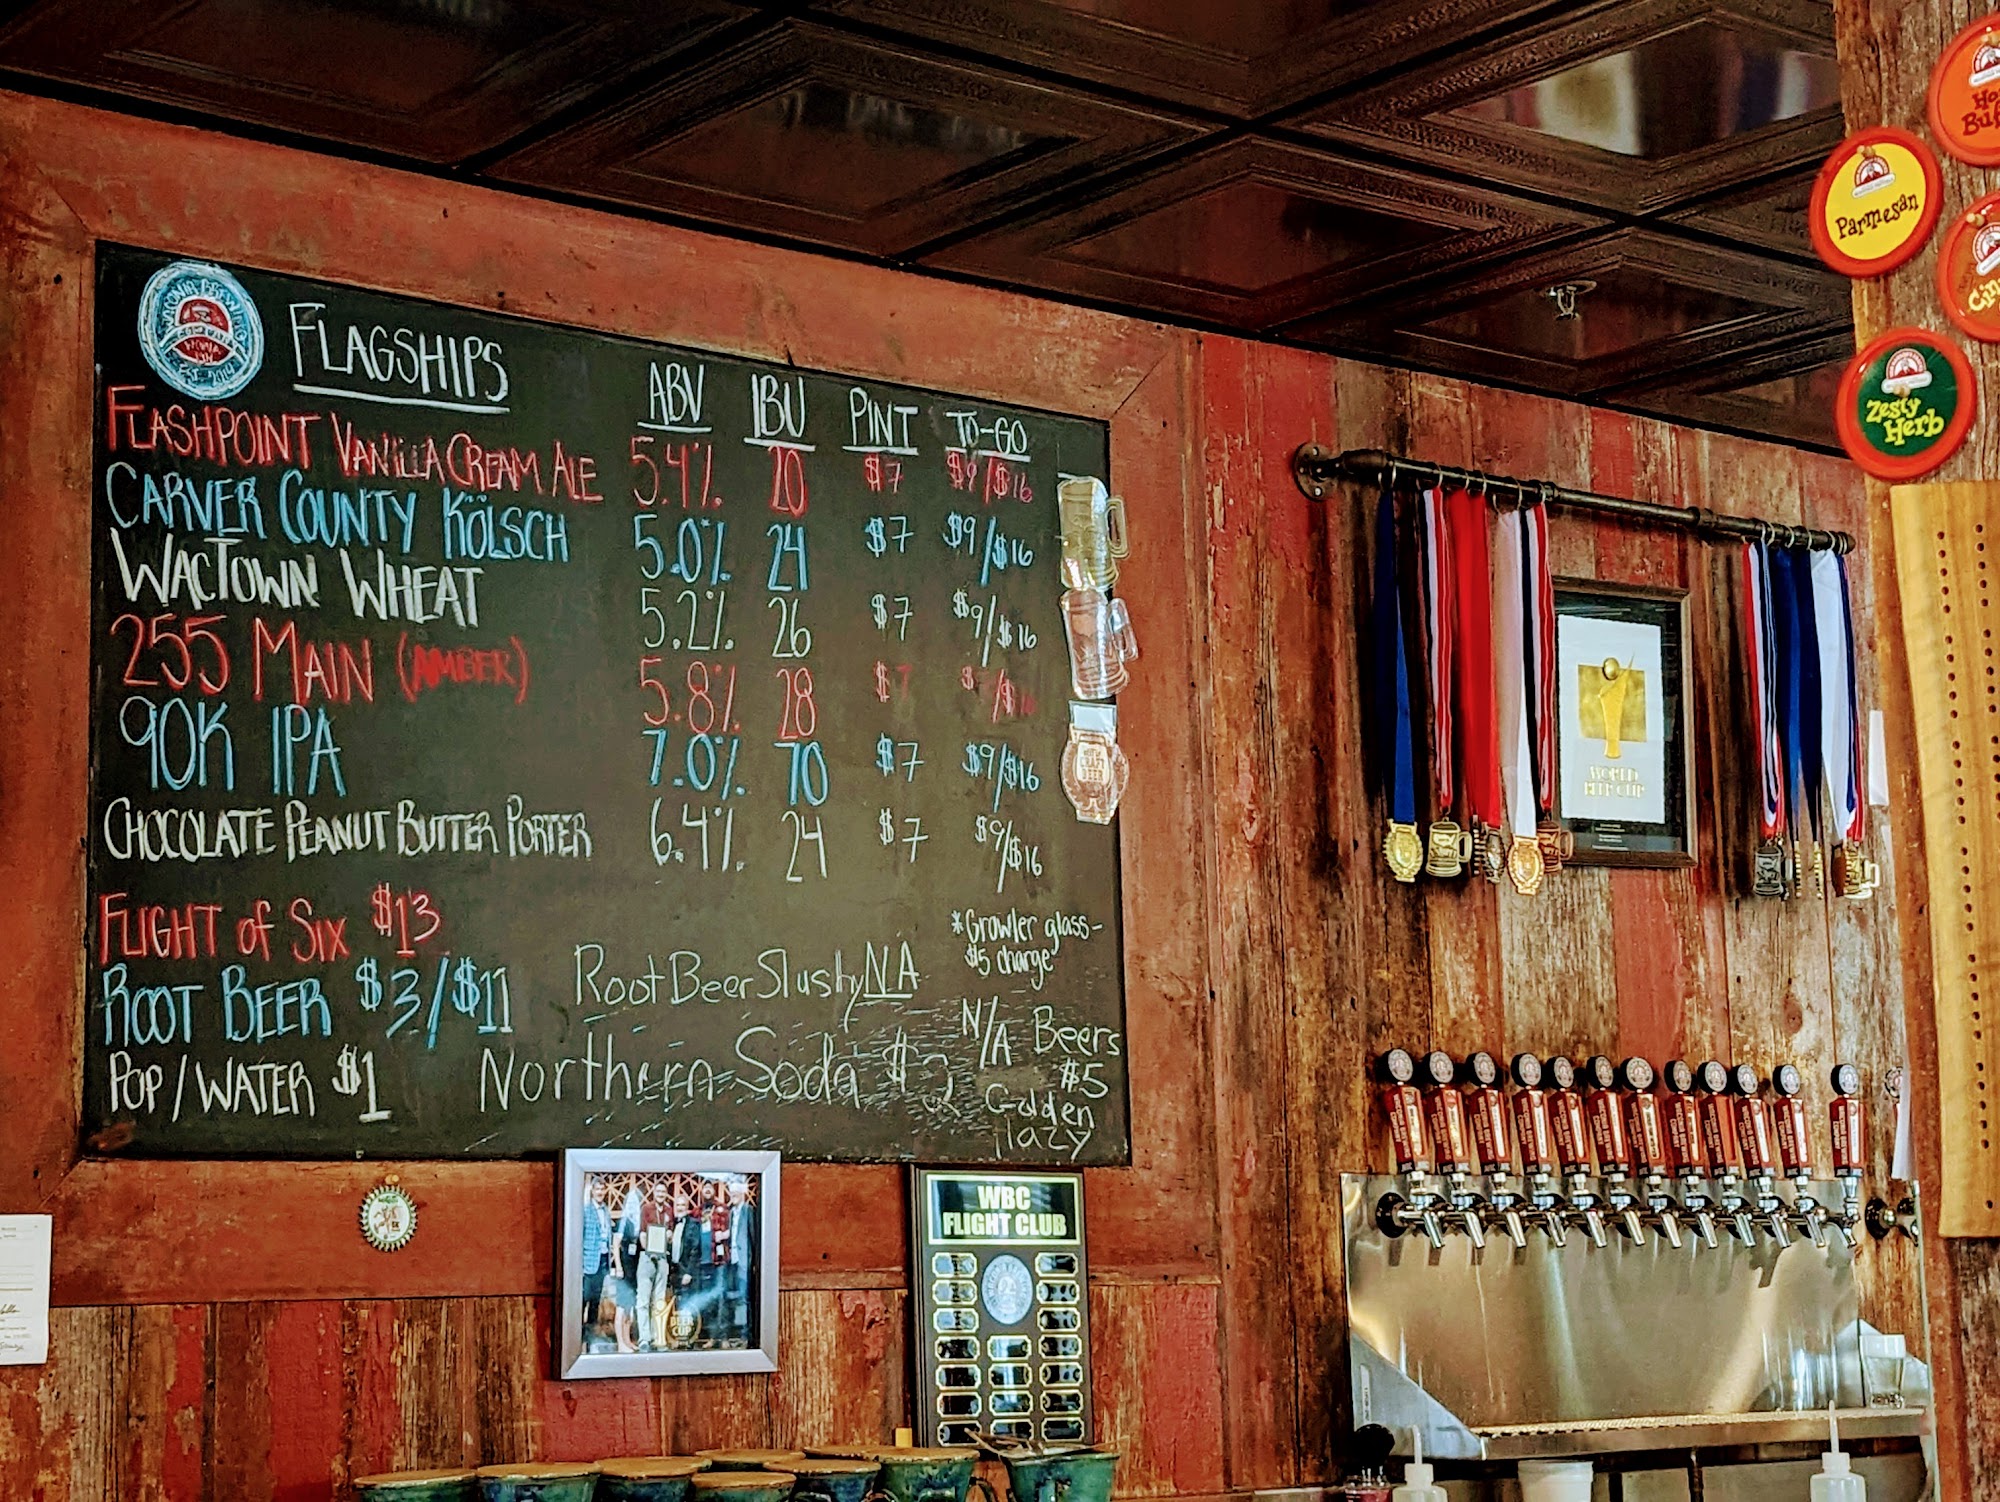 WACONIA BREWING
COMPANY
WACONIA
MN
EST. 2014
FLAGSHIPS
ABV IBU PINT TO-GO
FLASHPOINT VANILLA CREAM ALE 5.4% 20 $7 $9/$16
CARVER COUNTY KÖLSCH 5.0% 24 $7 $9/$16
WACTOWN WHEAT 5.2% 26 $7 $9/$16
255 MAIN (AMBER) 5.8% 28 $7 $9/$16
90K IPA 7.0% 70 $7 $9/$16
CHOCOLATE PEANUT BUTTER PORTER 6.4% 24 $7 $9/$16
FLIGHT of SIX $13
ROOT BEER $3/$11
POP/WATER $1
Root Beer Slushy NA
Northern Soda $2
*Growler glass-
$5 charge
N/A Beers
$5
Golden
CRAFT
BEER
WORLD
BEER CUP
Parmesan
Zesty
Herb
WBC
FLIGHT CLUB
BEER
CUP